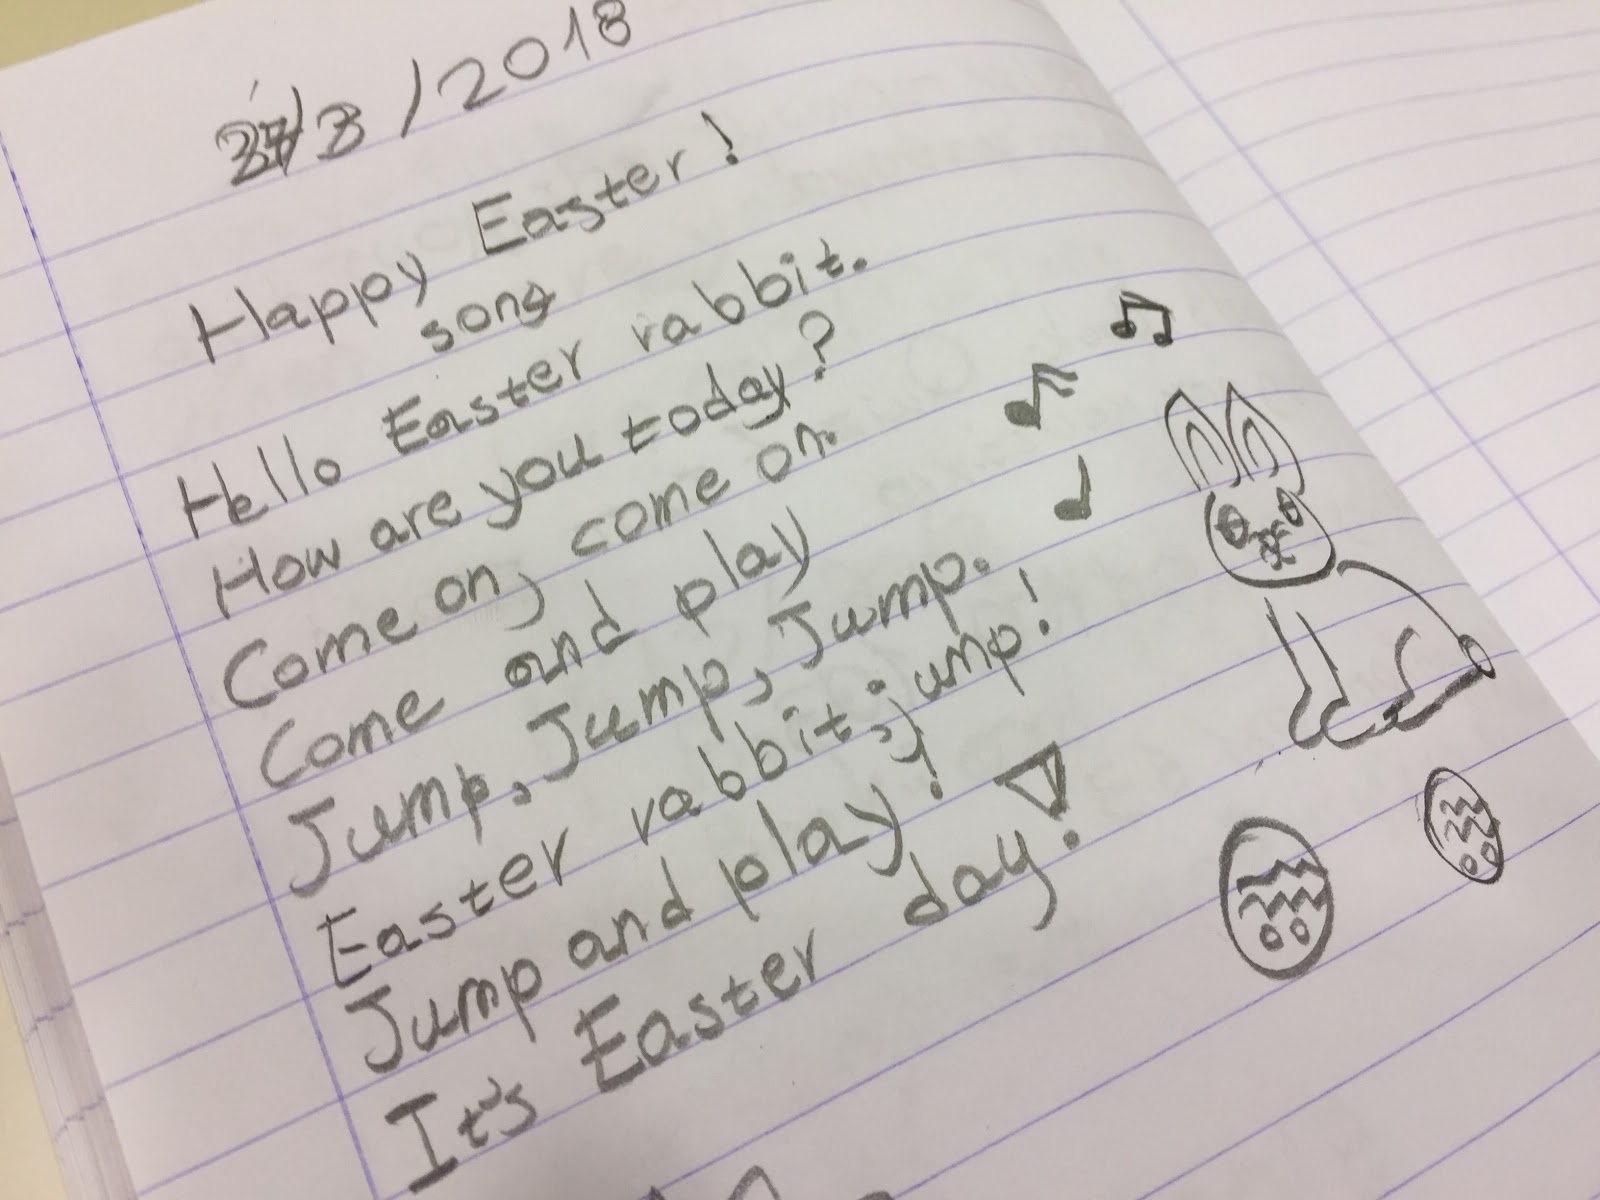 /3/2018
Happy Easter!
song
Hello Easter rabbit.
How are you today?
Come on, come on.
Come and play
Jump, Jump, Jump.
Easter rabbit, jump!
Jump and play!
It's Easter day!